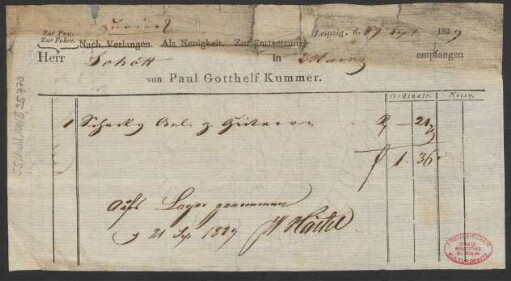 Zurück
Zur Pro.
Zur Fohrs.
Nach Verlangen. Als Neuigkeit. Zur Fortsetzung. Leipzig, d. 17 Sept 1829
Herr Schott in Mainz empfangen
von Paul Gotthelf Kummer.
Ordinair. Netto.
1 Schacky Anl. z. Guitarre 21
f 1. 36
Aufs Lager genommen
21 Sep 1829 Härtel